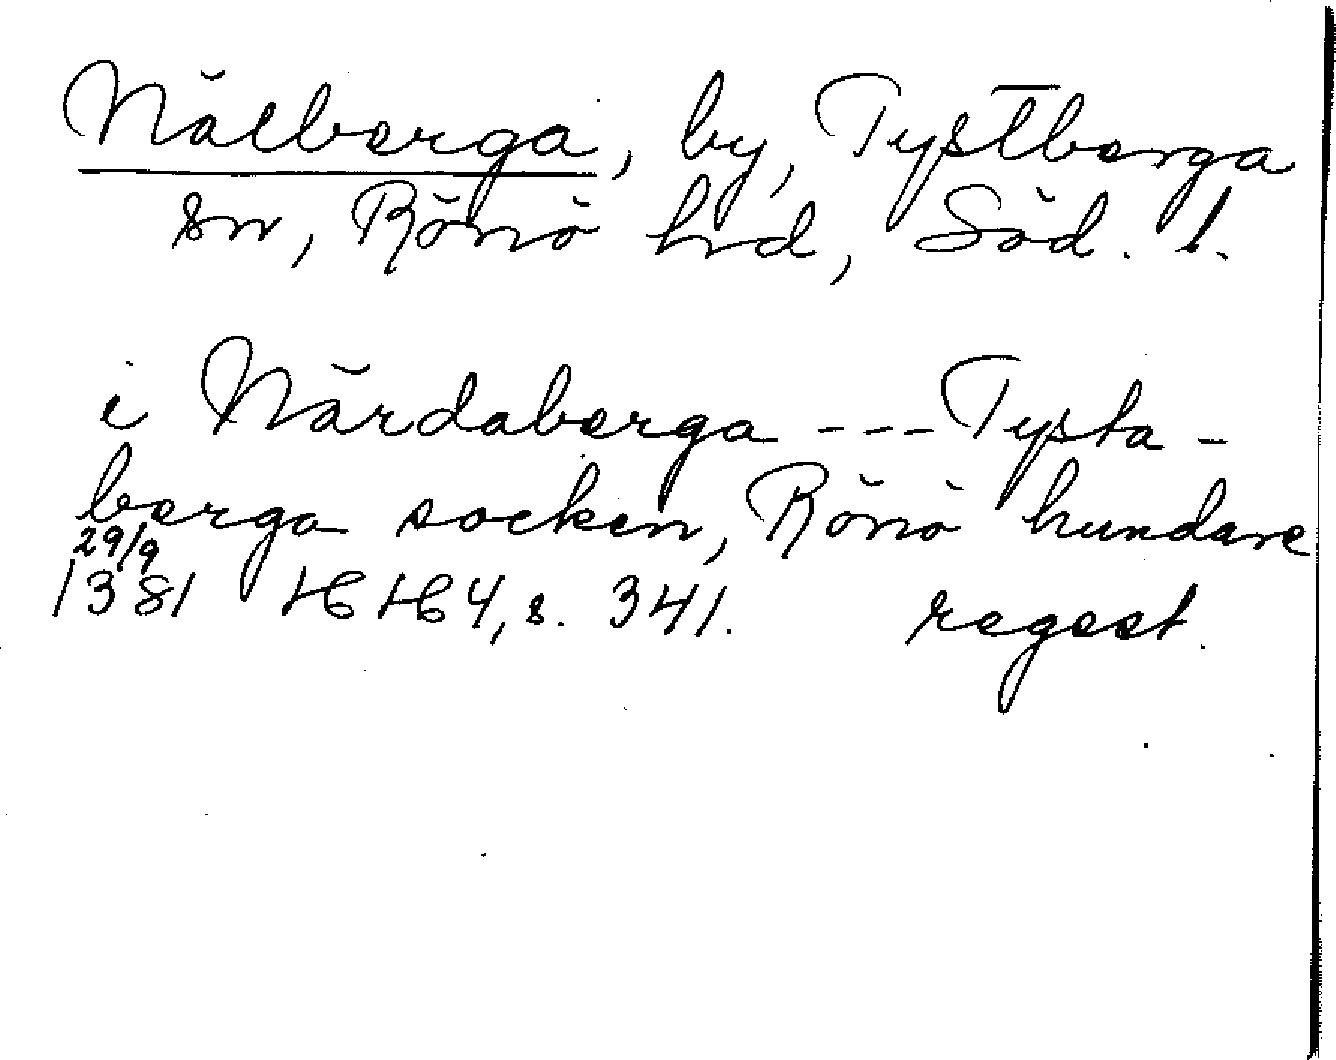 Nälberga, by, Tystberga
sn, Rönö hrd, Söd. l.
i Närdaberga --- Tysta-
berga socken, Rönö hundare
29/9
1381 HH 4, s. 341. regest.